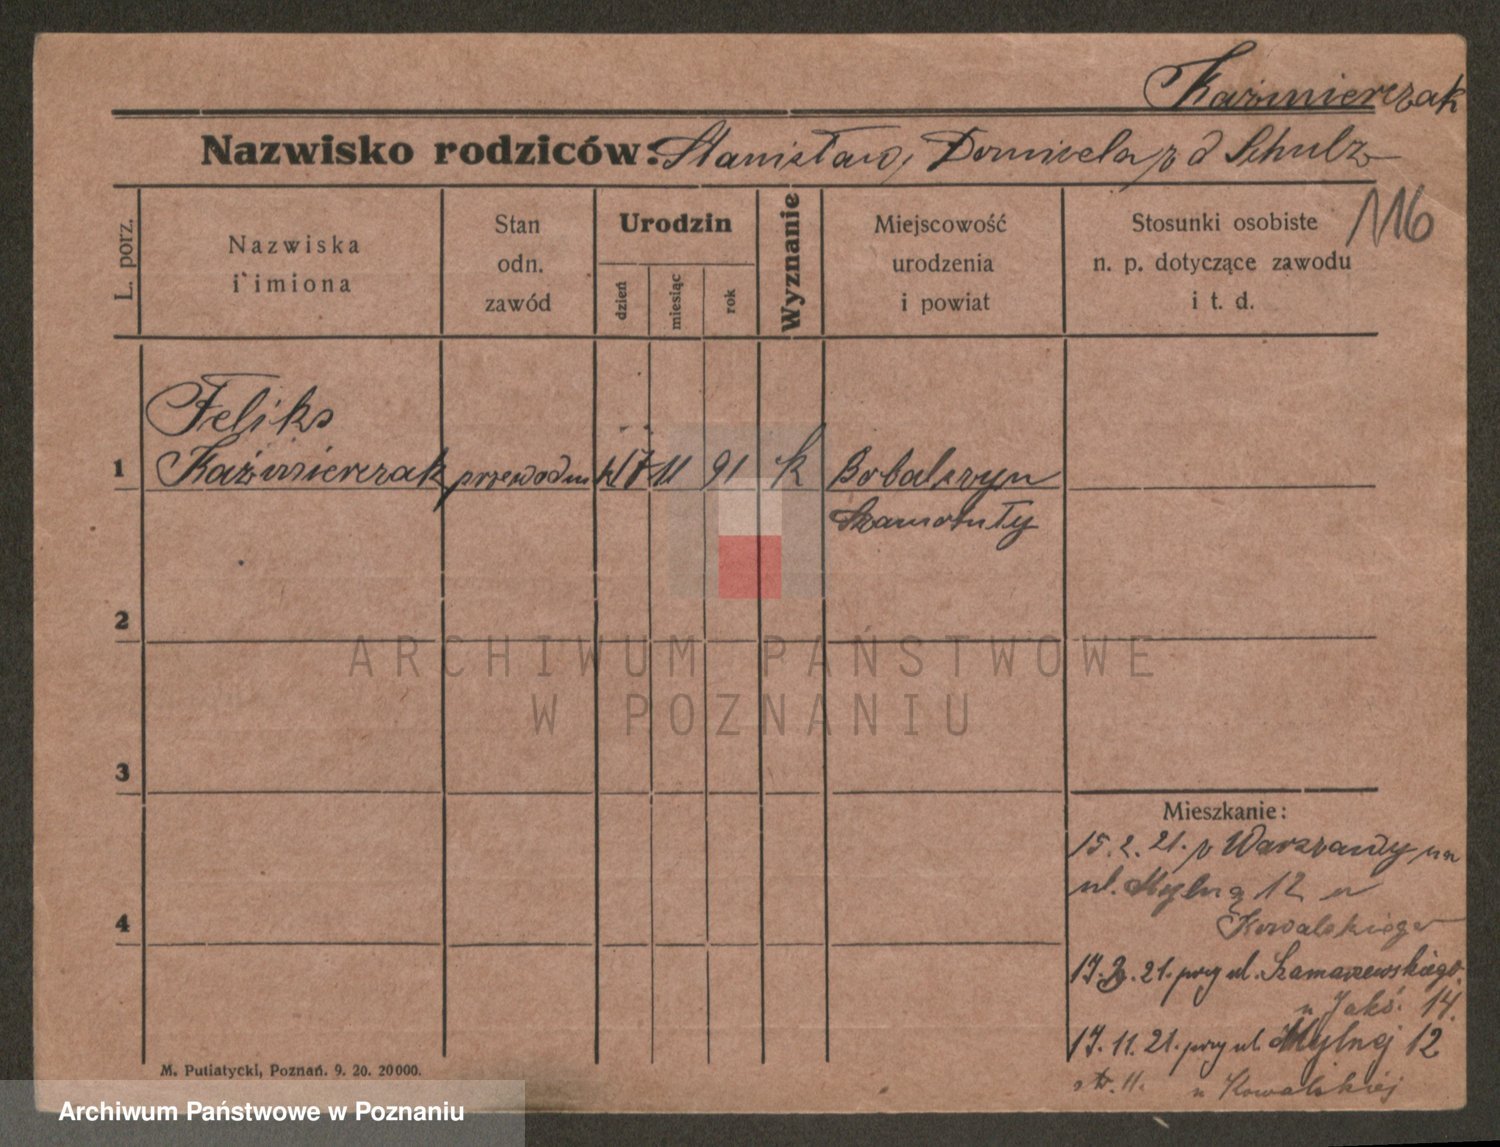 Kaźmierczak
Nazwisko rodziców: Stanisław, Domicela z d Schulz
116
L. porz.
Nazwiska
i imiona
Stan
odn.
zawód
Urodzin
dzień
miesiąc
rok
Wyznanie
Miejscowość
urodzenia
i powiat
Stosunki osobiste
n. p. dotyczące zawodu
i t. d.
Feliks
1 Kaźmierczak przewodnik 17 11 91 k Bobulczyn
Szamotuły
2
3
4
Mieszkanie:
15.2.21. z Warszawy na
ul. Mylną 12 u
Kowalskiego
17.2.21. przy ul. Szamarzewskiego
u Jakś. 14.
17.11.21. przy ul. Mylnej 12
11. u Kowalskiej
M. Putiatycki, Poznań. 9. 20. 20000.
ARCHIWUM PAŃSTWOWE
W POZNANIU
Archiwum Państwowe w Poznaniu